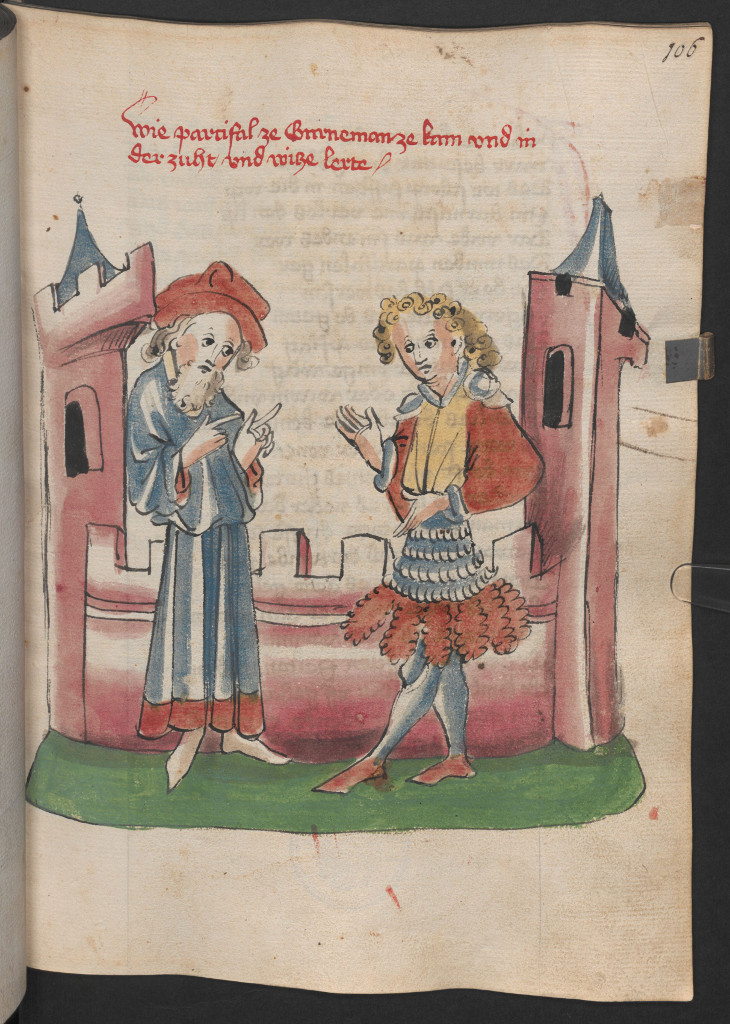 106
wie parcifal ze Gurnemanze kam vnd in
der zuht vnd witze lerte